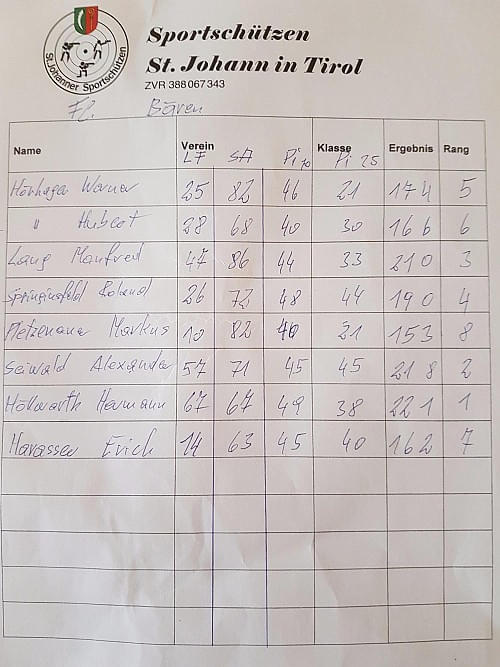 St. Johanner Sportschützen
Sportschützen
St. Johann in Tirol
ZVR 388067343
Bären
Name Verein Klasse Ergebnis Rang
LF SA Pi 10 Pi 25
Werner 25 82 46 21 174 5
" Hubert 28 68 40 30 166 6
Lang Manfred 47 86 44 33 210 3
Springinsfeld Roland 26 72 48 44 190 4
Markus 10 82 40 21 153 8
Seiwald Alexander 57 71 45 45 218 2
Höllwarth Hermann 67 67 49 38 221 1
Harasser Erich 14 63 45 40 162 7